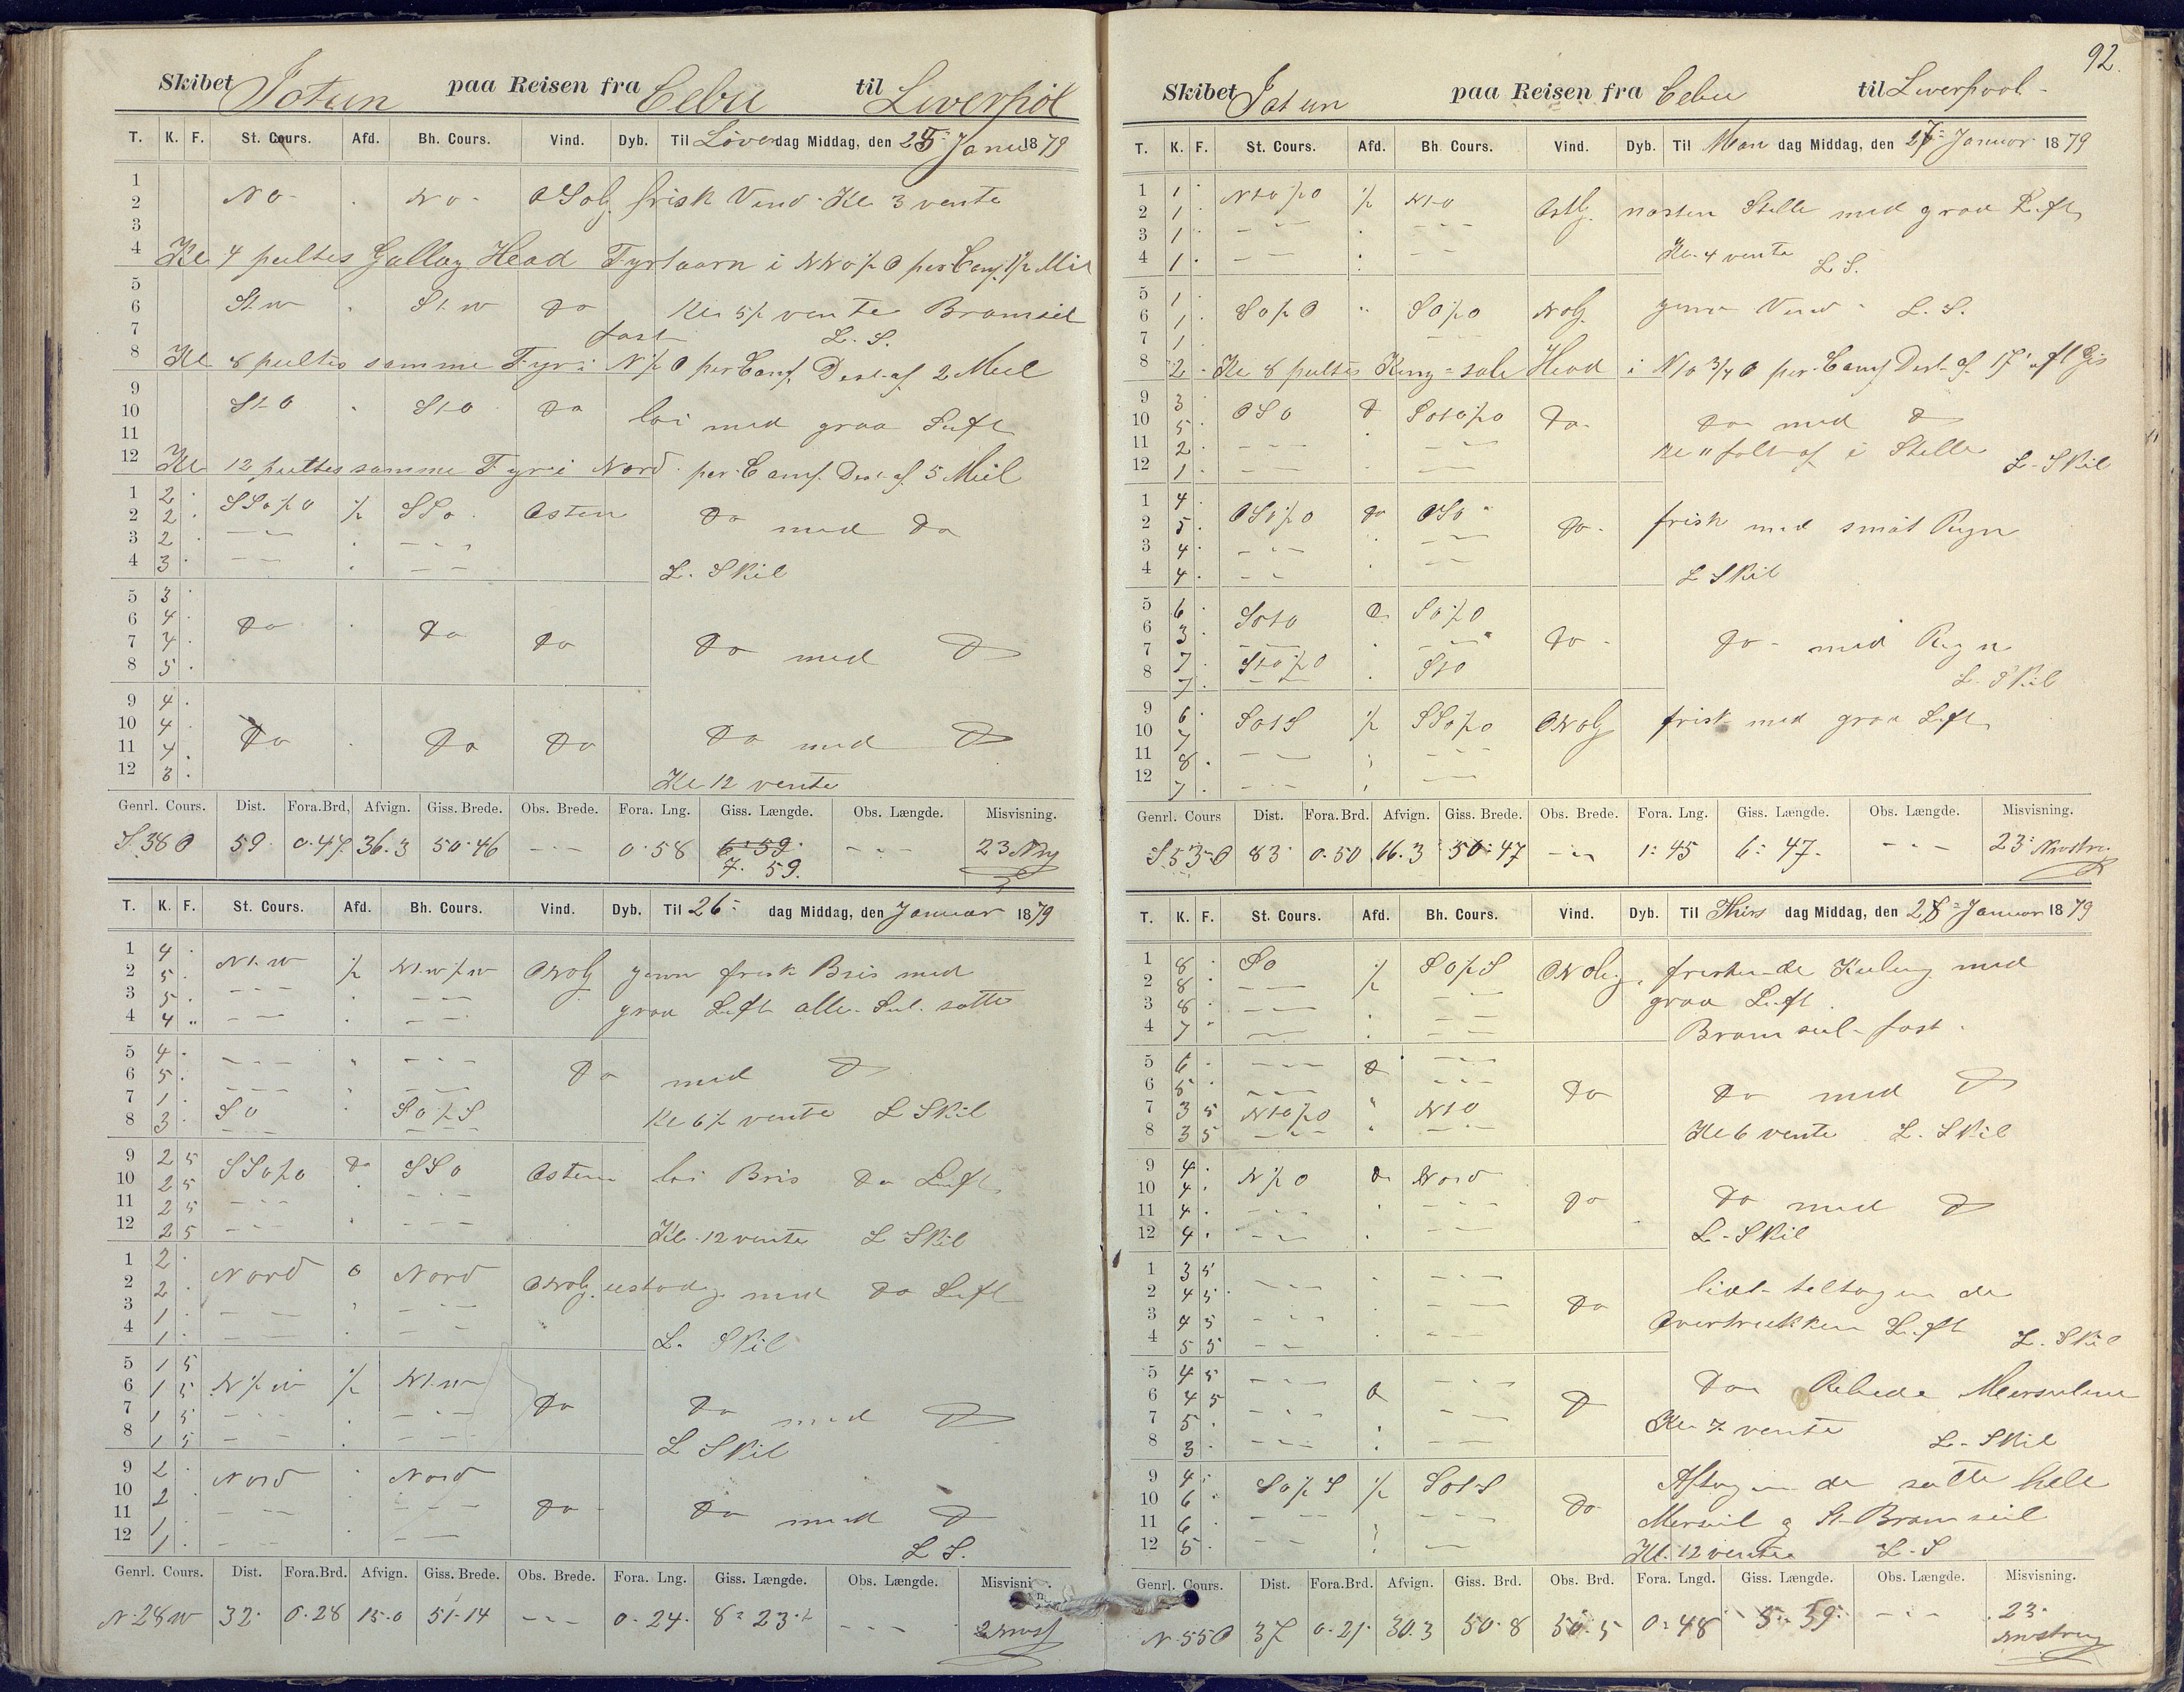 Skibet Jotun paa Reisen fra Cebu til Liverpol
T. K. F. St. Cours. Afd. Bh. Cours. Vind. Dyb. Til Løverdag Middag, den 25 Janu 1879
1
2 NO - . NO - OSolg frisk Vind - Kl 3 vente
3
4 Kl 4 peiltes Galley Head Fyrtaarn i
5
6 St.w . St.w do Kl 5½ vente Bramseil
7 fast L. S.
8 Kl 8 peiltes samme Fyr i N½O per Comp. Dist. af 2 Miil
9
10 StO . StO do løi med graa Luft
11
12 Kl 12 peiltes samme Fyr i Nord per Comp. Dist. af 5 Miil
1 2 .
2 2 . SSO½O ½ SSO . Østen do med do
3 2 . - - - . - - -
4 3 . - - - . - - - L. Skil
5 3 .
6 4 . do . do do do med do
7 4 .
8 5 .
9 4 .
10 4 . do . do do do med do
11 4 .
12 3 . Kl 12 vente
Genrl. Cours. Dist. Fora.Brd, Afvign. Giss. Brede. Obs. Brede. Fora. Lng. Giss. Længde. Obs. Længde. Misvisning.
S.38 O 59. 0.47. 36.3 50.46 - - - 0.58 6.59. - - - 23
7. 59.
T. K. F. St. Cours. Afd. Bh. Cours. Vind. Dyb. Til 26- dag Middag, den Januar 1879
1 4 .
2 5 . Nt.w ½ Nt.w½w ONOlg jevn frisk Bris med
3 5 . - - - . - - - graa Luft alle Seil satte
4 4 " - - - . - - -
5 4 . - - - " - - -
6 5 . do med do
7 1 . - - - " - - -
8 3 . SO . SO½S Kl 6½ vente L Skil
9 2 5
10 2 5 SSO½O do SSO Østen løi Bris do Luft
11 2 5 - - - . - - -
12 2 5 - - - . - - - Kl. 12 vente L Skil
1 2 .
2 2 . Nord 0 Nord ONOlg ustadig med do Luft
3 1 . - - - . - - -
4 1 . - - - . - - - L. Skil
5 1 5
6 1 5 N½w ½ Nt.w
7 1 5 - - - . - - - do do med do
8 1 5 - - - . - - - L Skil
9 2 . Nord . Nord
10 2
11 1 . - - - - - - do - do med do
12 1 . - - - . - - - L S.
Genrl. Cours. Dist. Fora.Brd. Afvign. Giss. Brede. Obs. Brede. Fora. Lng. Giss. Længde. Obs. Længde. Misvisning.
N.28w 32. 0.28 15.0 51.14 - - - 0.24. 8 23 - - -
92.
Skibet Jotun paa Reisen fra Cebu til Liverpool -
T. K. F. St. Cours. Afd. Bh. Cours. Vind. Dyb. Til Man dag Middag, den 27- Januar 1879
1 1 . NtO½O ½ NtO
2 1 . - - - - - - Østlg. næsten Stille med graa Luft
3 1 . - - - . - - -
4 1 . - - - . - - - Kl. 4 vente L S.
5 1 .
6 1 . SO½O " SO½O NOlg. jevn Vind - L. S.
7 1 . - - -
8 2 . Kl 8 peiltes King-sale Head i NtO ¾ O per. Comp Dist. af 17'
9 3 .
10 5 . OSO do SOtO½O do. do med do
11 2 . - - - . - - - Kl 11 falt af i Stille
12 1 . - - - - - - L. Skil
1 4 .
2 5 . OSO½O do OSO " frisk med smat Regn
3 4 . - - - . - - - do.
4 4 . - - . - - - L Skil
5 6 .
6 3 . SOtO do SO½O
7 7 . - - - . - - - do - do - med Regn
8 7 . StO½O . StO L. Skil
9 6 .
10 7 SOtS ½ SSO½O ONOlg frisk med graa Luft
11 8 . - - - . - - -
12 7 . - - - . - - -
Genrl. Cours Dist. Fora.Brd. Afvign. Giss. Brede. Obs. Brede. Fora. Lng. Giss. Længde. Obs. Længde. Misvisning.
S53O 83. 0.50 66.3 50.47 - - - 1:45 6: 47. - - - 23.
T. K. F. St. Cours. Afd. Bh. Cours. Vind. Dyb. Til Thirs dag Middag, den 28- Januar 1879
1 8 . SO SO½S
2 8 . - - - ½ - - - ONOlig. friskende Kuling med
3 8 . - - - . - - - graa Luft.
4 7 . - - - . - - - Bramseil fast.
5 6 . - - - do - - -
6 5 . - - - - - - do do med do
7 3 5 NtO½O " NtO
8 3 5 - - - . - - - Kl 6 vente L. Skil
9 4 .
10 4 . N½O do Nord
11 4 . - - - . - - - do do med do
12 4 . - - - . - - - L. Skil
1 3 5 - - - . - - - lidt tiltagende
2 4 5 . - - - do
3 4 5 - - - . - - - Overtrukken Luft
4 5 5 - - . - - - L. Skil
5 4 5 - - - - - - do Rebede Merseilene
6 4 5 - - - do - - - do
7 5 . - - - Kl 7 vente
8 3 . - - - . - - - L. Skil
9 4 . SO½S ½ SOtS Aftagende satte hele
10 6 . do
11 6 . - - - - - - Merseil og St. Bramseil
12 5 . - - - - - - Kl. 12 vente L. S
Genrl. Cours. Dist. Fora.Brd. Afvign. Giss. Brd. Obs. Brd. Fora. Lngd. Giss. Længde. Obs. Længde. Misvisning.
N.55O 37 0.21. 30.3 50.8 50.5 0:48 5. 59. - - - 23.